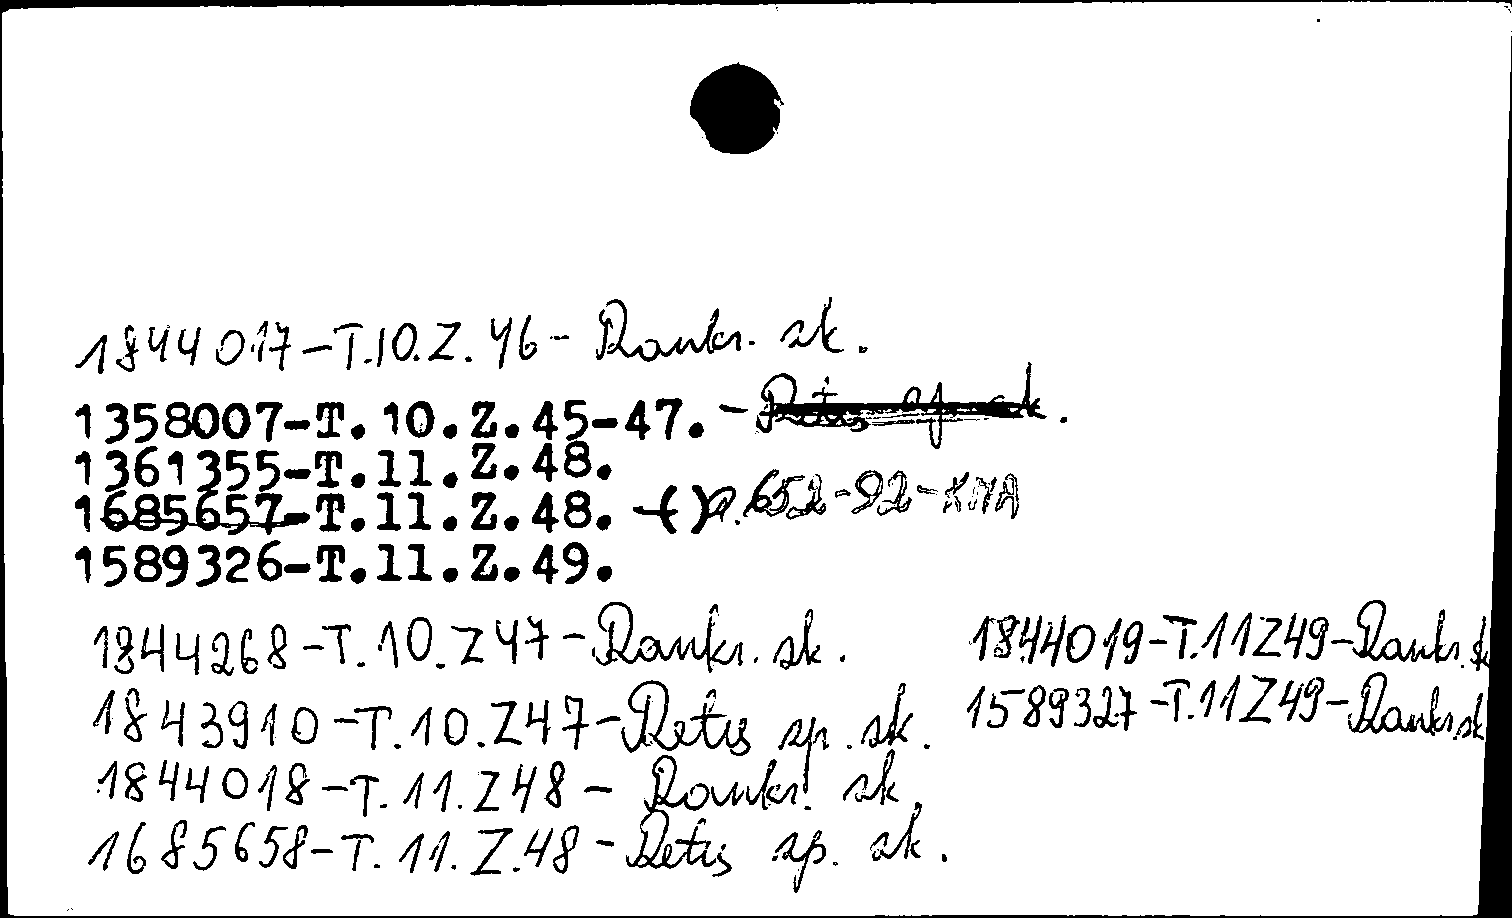 1844017-T.10.Z.46- Rankr. sk.
1358007-T.10.Z.45-47. - Retus sp. sk.
1361355-T.11.Z.48.
1685657-T.11.Z.48. -( ) a. 652-92-KNA
1589326-T.11.Z.49.
1844268-T.10.Z47-Rankr. sk.
1843910-T.10.Z47-Retus sp. sk.
1844018-T.11.Z48- Rankr. sk.
1685658-T.11.Z.48-Retus sp. sk.
1844019-T.11Z49-Rankr. sk
1589327-T.11Z49-Rankr.sk